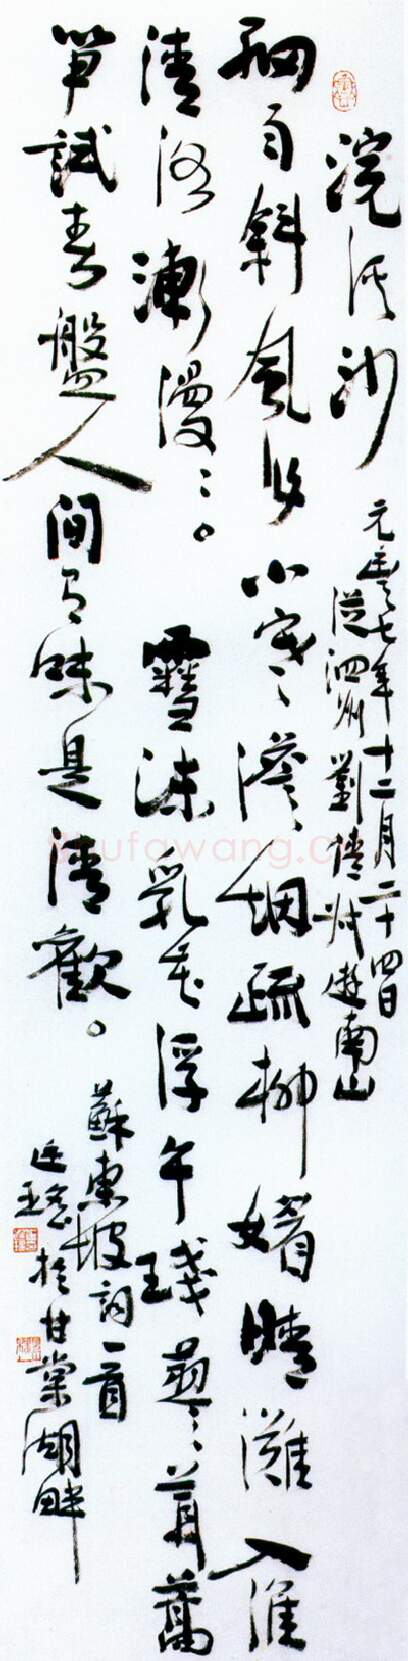 浣溪沙
元豐七年十二月二十四日
從泗州劉倩叔遊南山
細雨斜風作小寒淡烟疏柳媚晴灘入淮
清洛漸漫〻。雪沫乳花浮午琖蓼茸蒿
筍試春盤人間有味是清歡。
蘇東坡詞一首
於甘棠湖畔